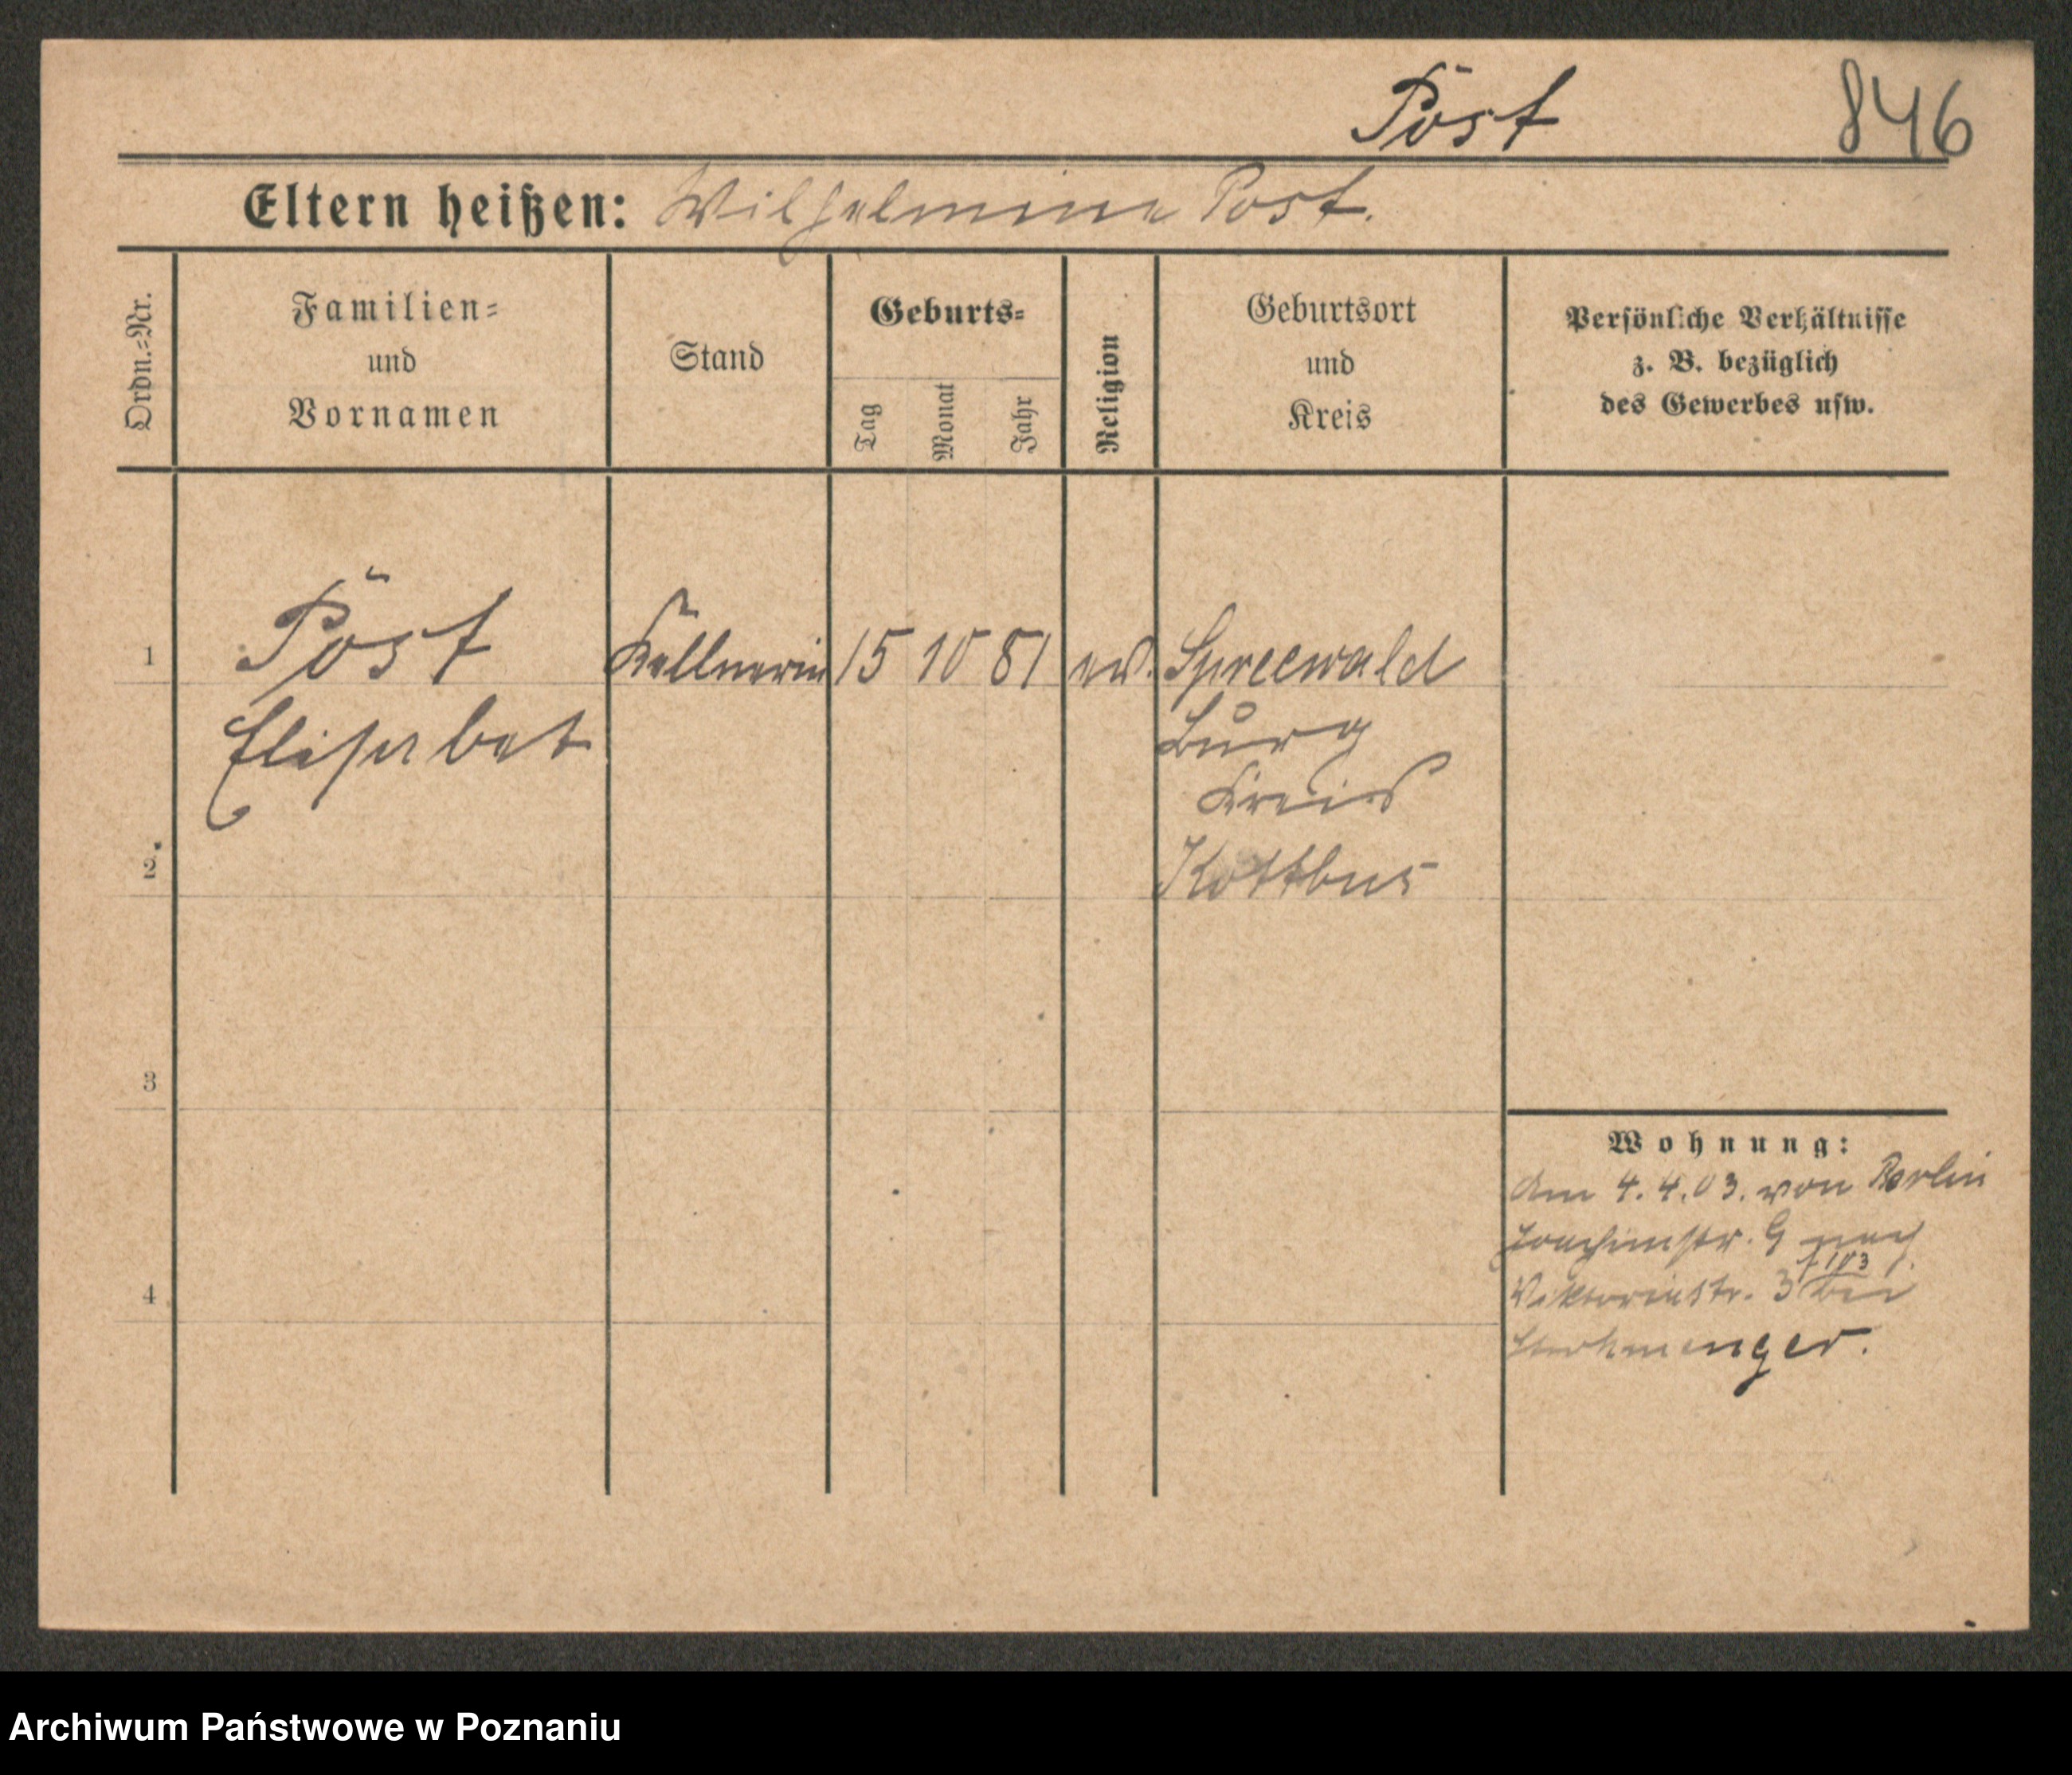 Post 846
Eltern heißen: Wilhelmine Post.
Ordn.=Nr.
Familien=
und
Vornamen
Stand
Geburts=
Tag
Monat
Jahr
Religion
Geburtsort
und
Kreis
Persönliche Verhältnisse
z. B. bezüglich
des Gewerbes usw.
1 Post Kellnerin 15 10 81 ev. Spreewald
Elisabet Burg
Kreis
2 Kottbus
3
Wohnung:
Am 4.4.03. von Berlin
Joachimstr. 9 nach
4 Viktoriastr. 3 bei
Archiwum Państwowe w Poznaniu